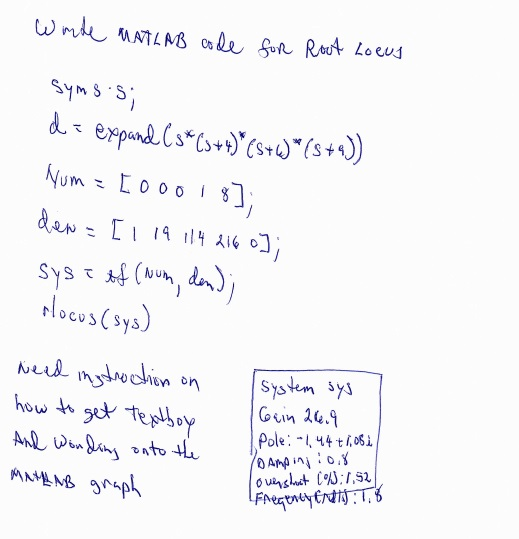 Write MATLAB code for Root Locus
syms s;
d = expand(s*(s+4)*(s+6)*(s+9))
Num = [0 0 0 1 8];
den = [1 19 114 216 0];
sys = tf(Num, den);
rlocus(sys)
Need instruction on
how to get Textbox
And Wording onto the
MATLAB graph
System sys
Gain 26.9
Pole: -1.44 + 1.08i
DAMPING: 0.8
overshoot (%): 1.52
Frequency (rad/s): 1.8